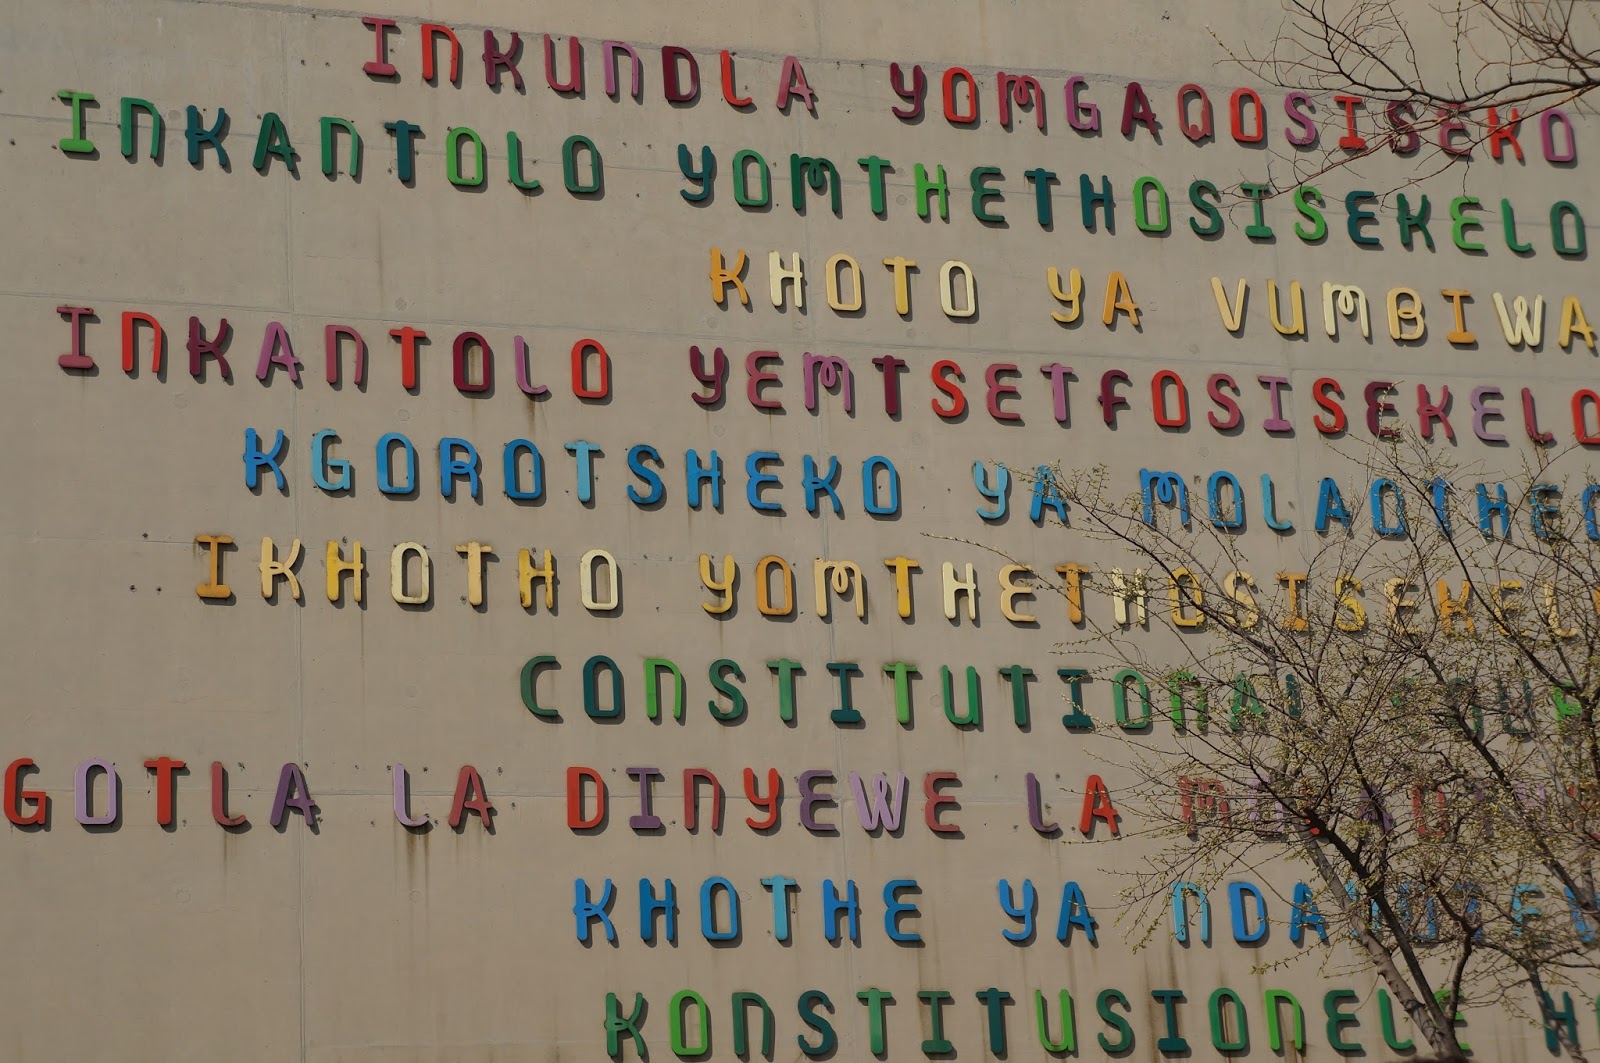 INKUNDLA YOMGAQOSISEKO
INKANTOLO YOMTHETHOSISEKELO
KHOTO YA VUMBIWA
INKANTOLO YEMTSETFOSISEKELO
KGOROTSHEKO YA MOLAOTHEO
IKHOTHO YOMTHETHOSISEKEL
CONSTITUTIONAL
GOTLA LA DINYEWE LA
KHOTHE YA
KONSTITUSIONELE